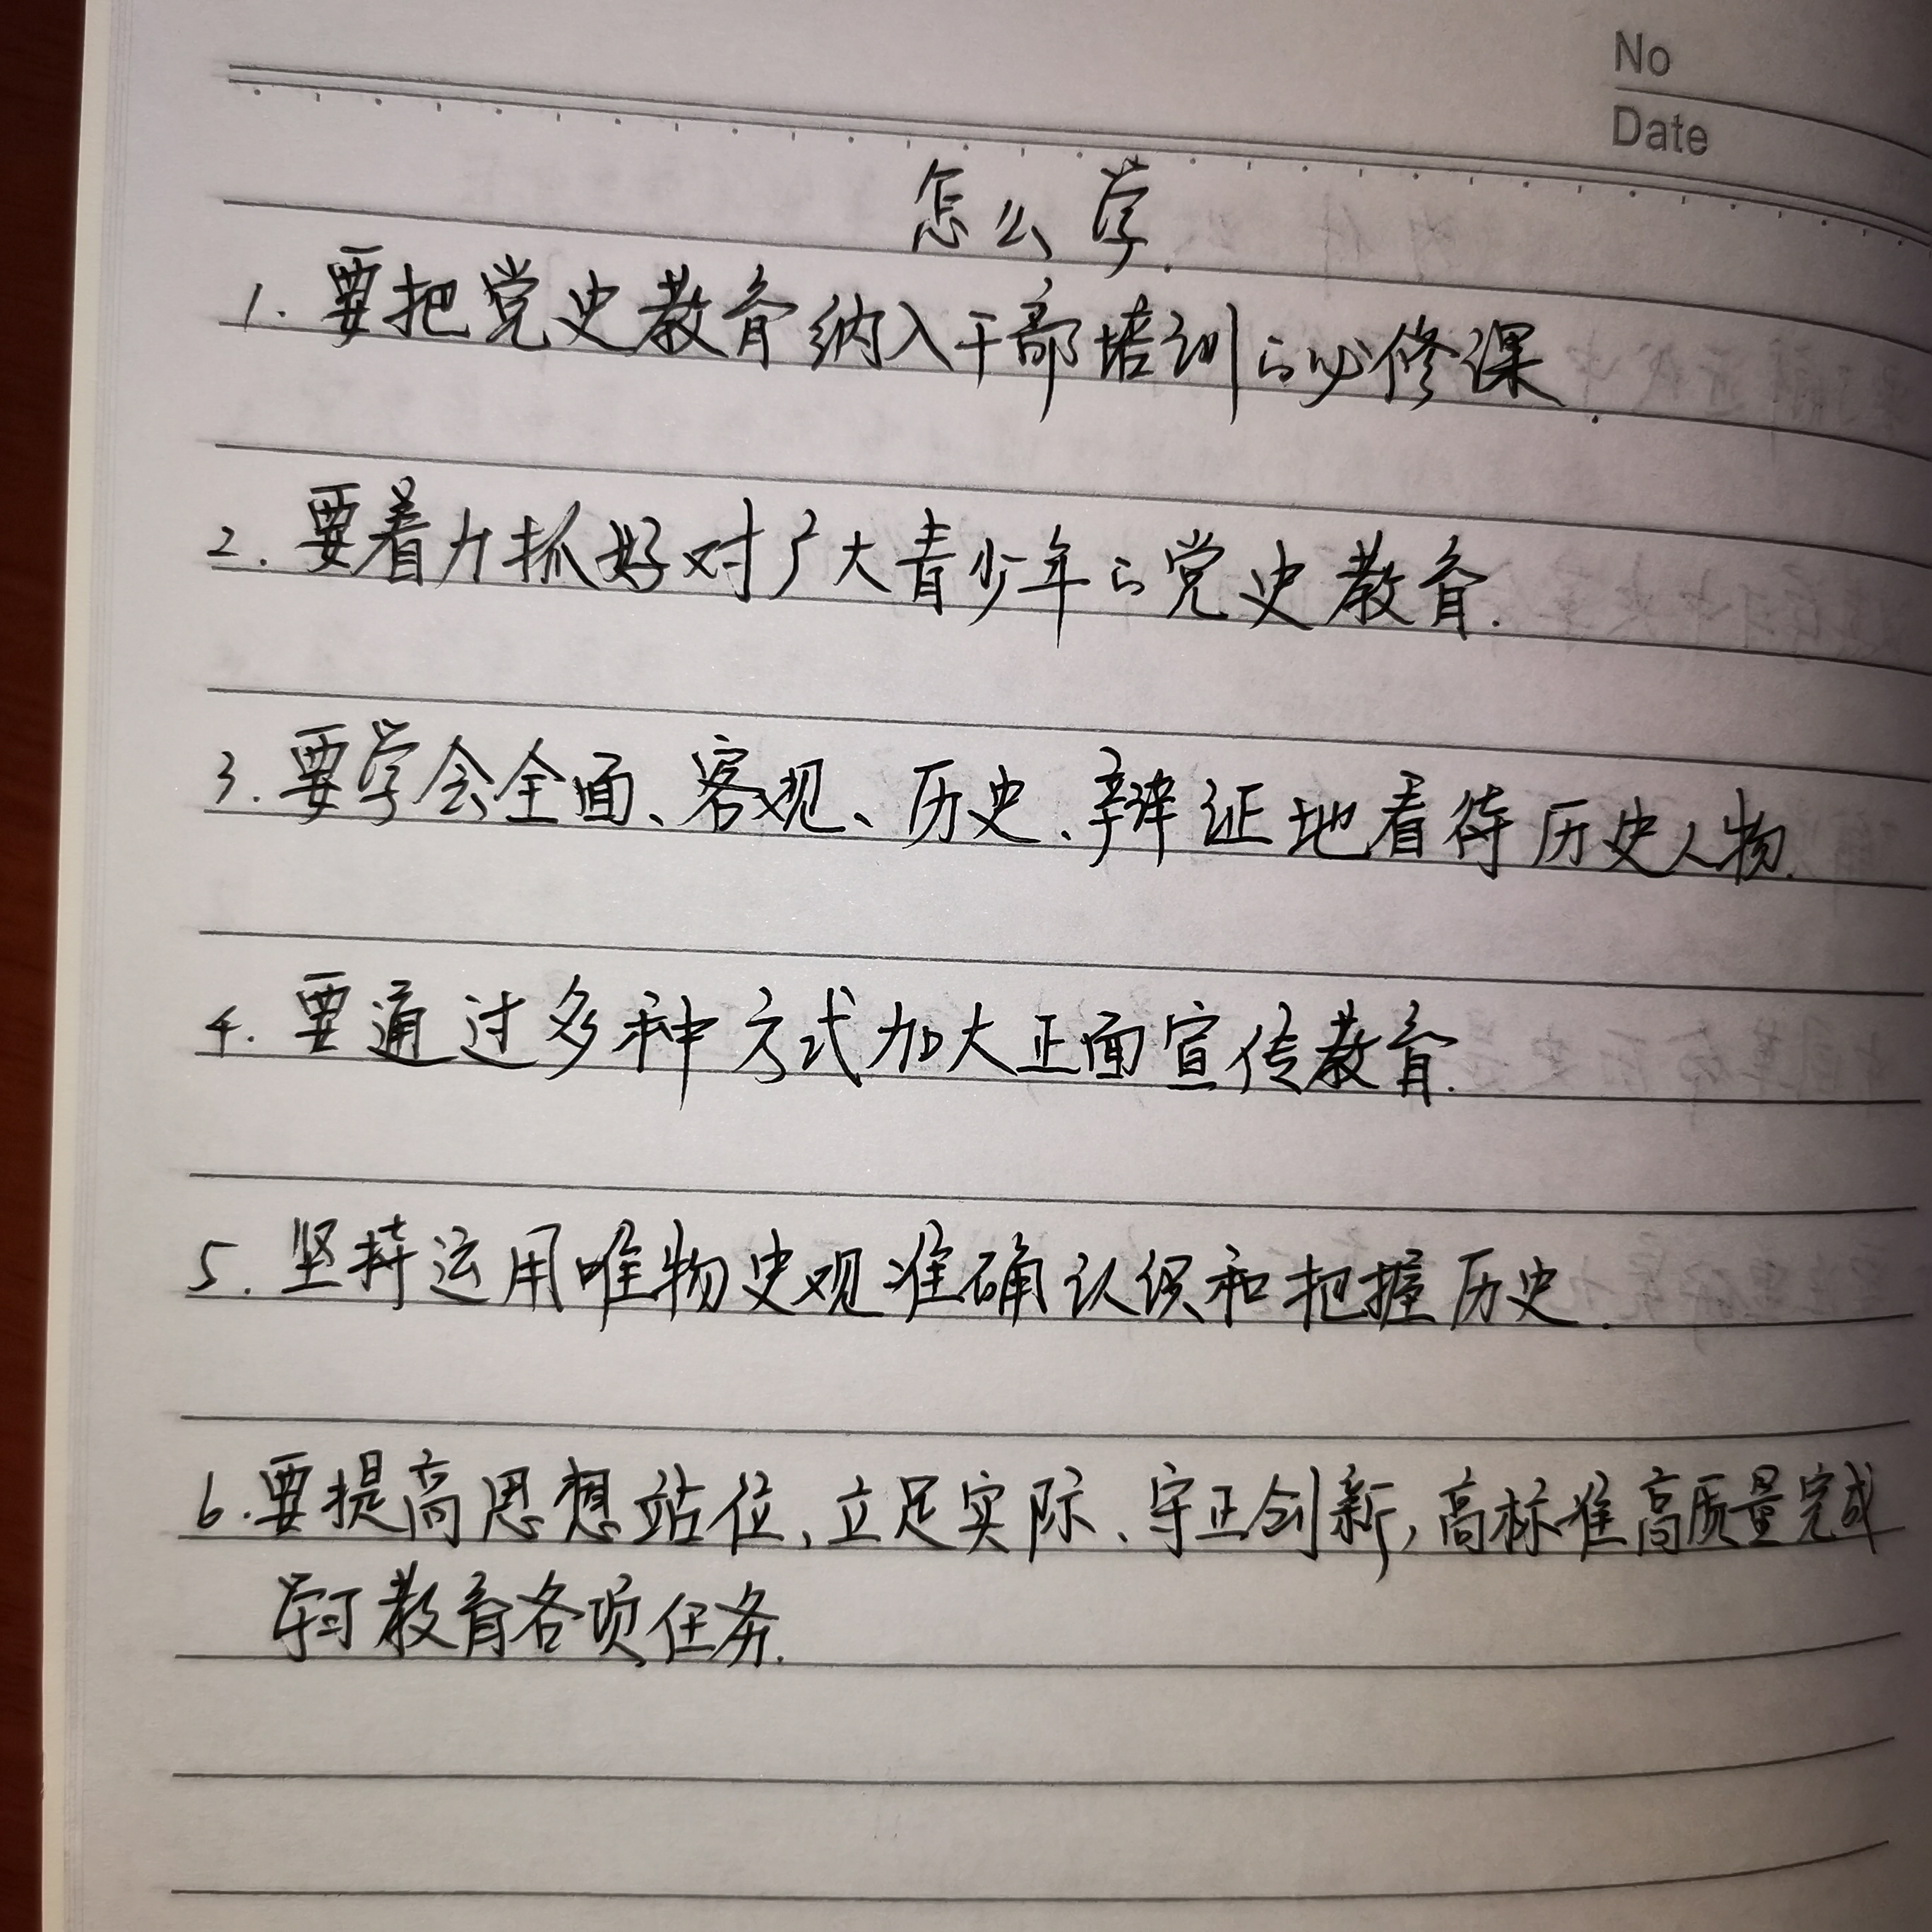 No
Date
怎么学.
1. 要把党史教育纳入干部培训的必修课.
2. 要着力抓好对广大青少年的党史教育.
3. 要学会全面、客观、历史、辩证地看待历史人物.
4. 要通过多种方式加大正面宣传教育.
5. 坚持运用唯物史观准确认识和把握历史.
6. 要提高思想站位、立足实际、守正创新,高标准高质量完成
学习教育各项任务.